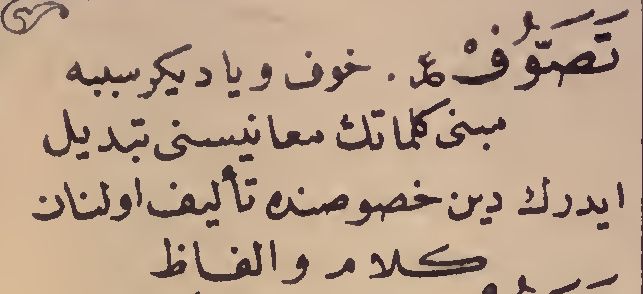 تَصَوُّفْ ع. خوف ويا ديكر سببه
مبنى كلماتك معانيسنى تبديل
ايدرك دين خصوصنده تأليف اولنان
كلام والفاظ